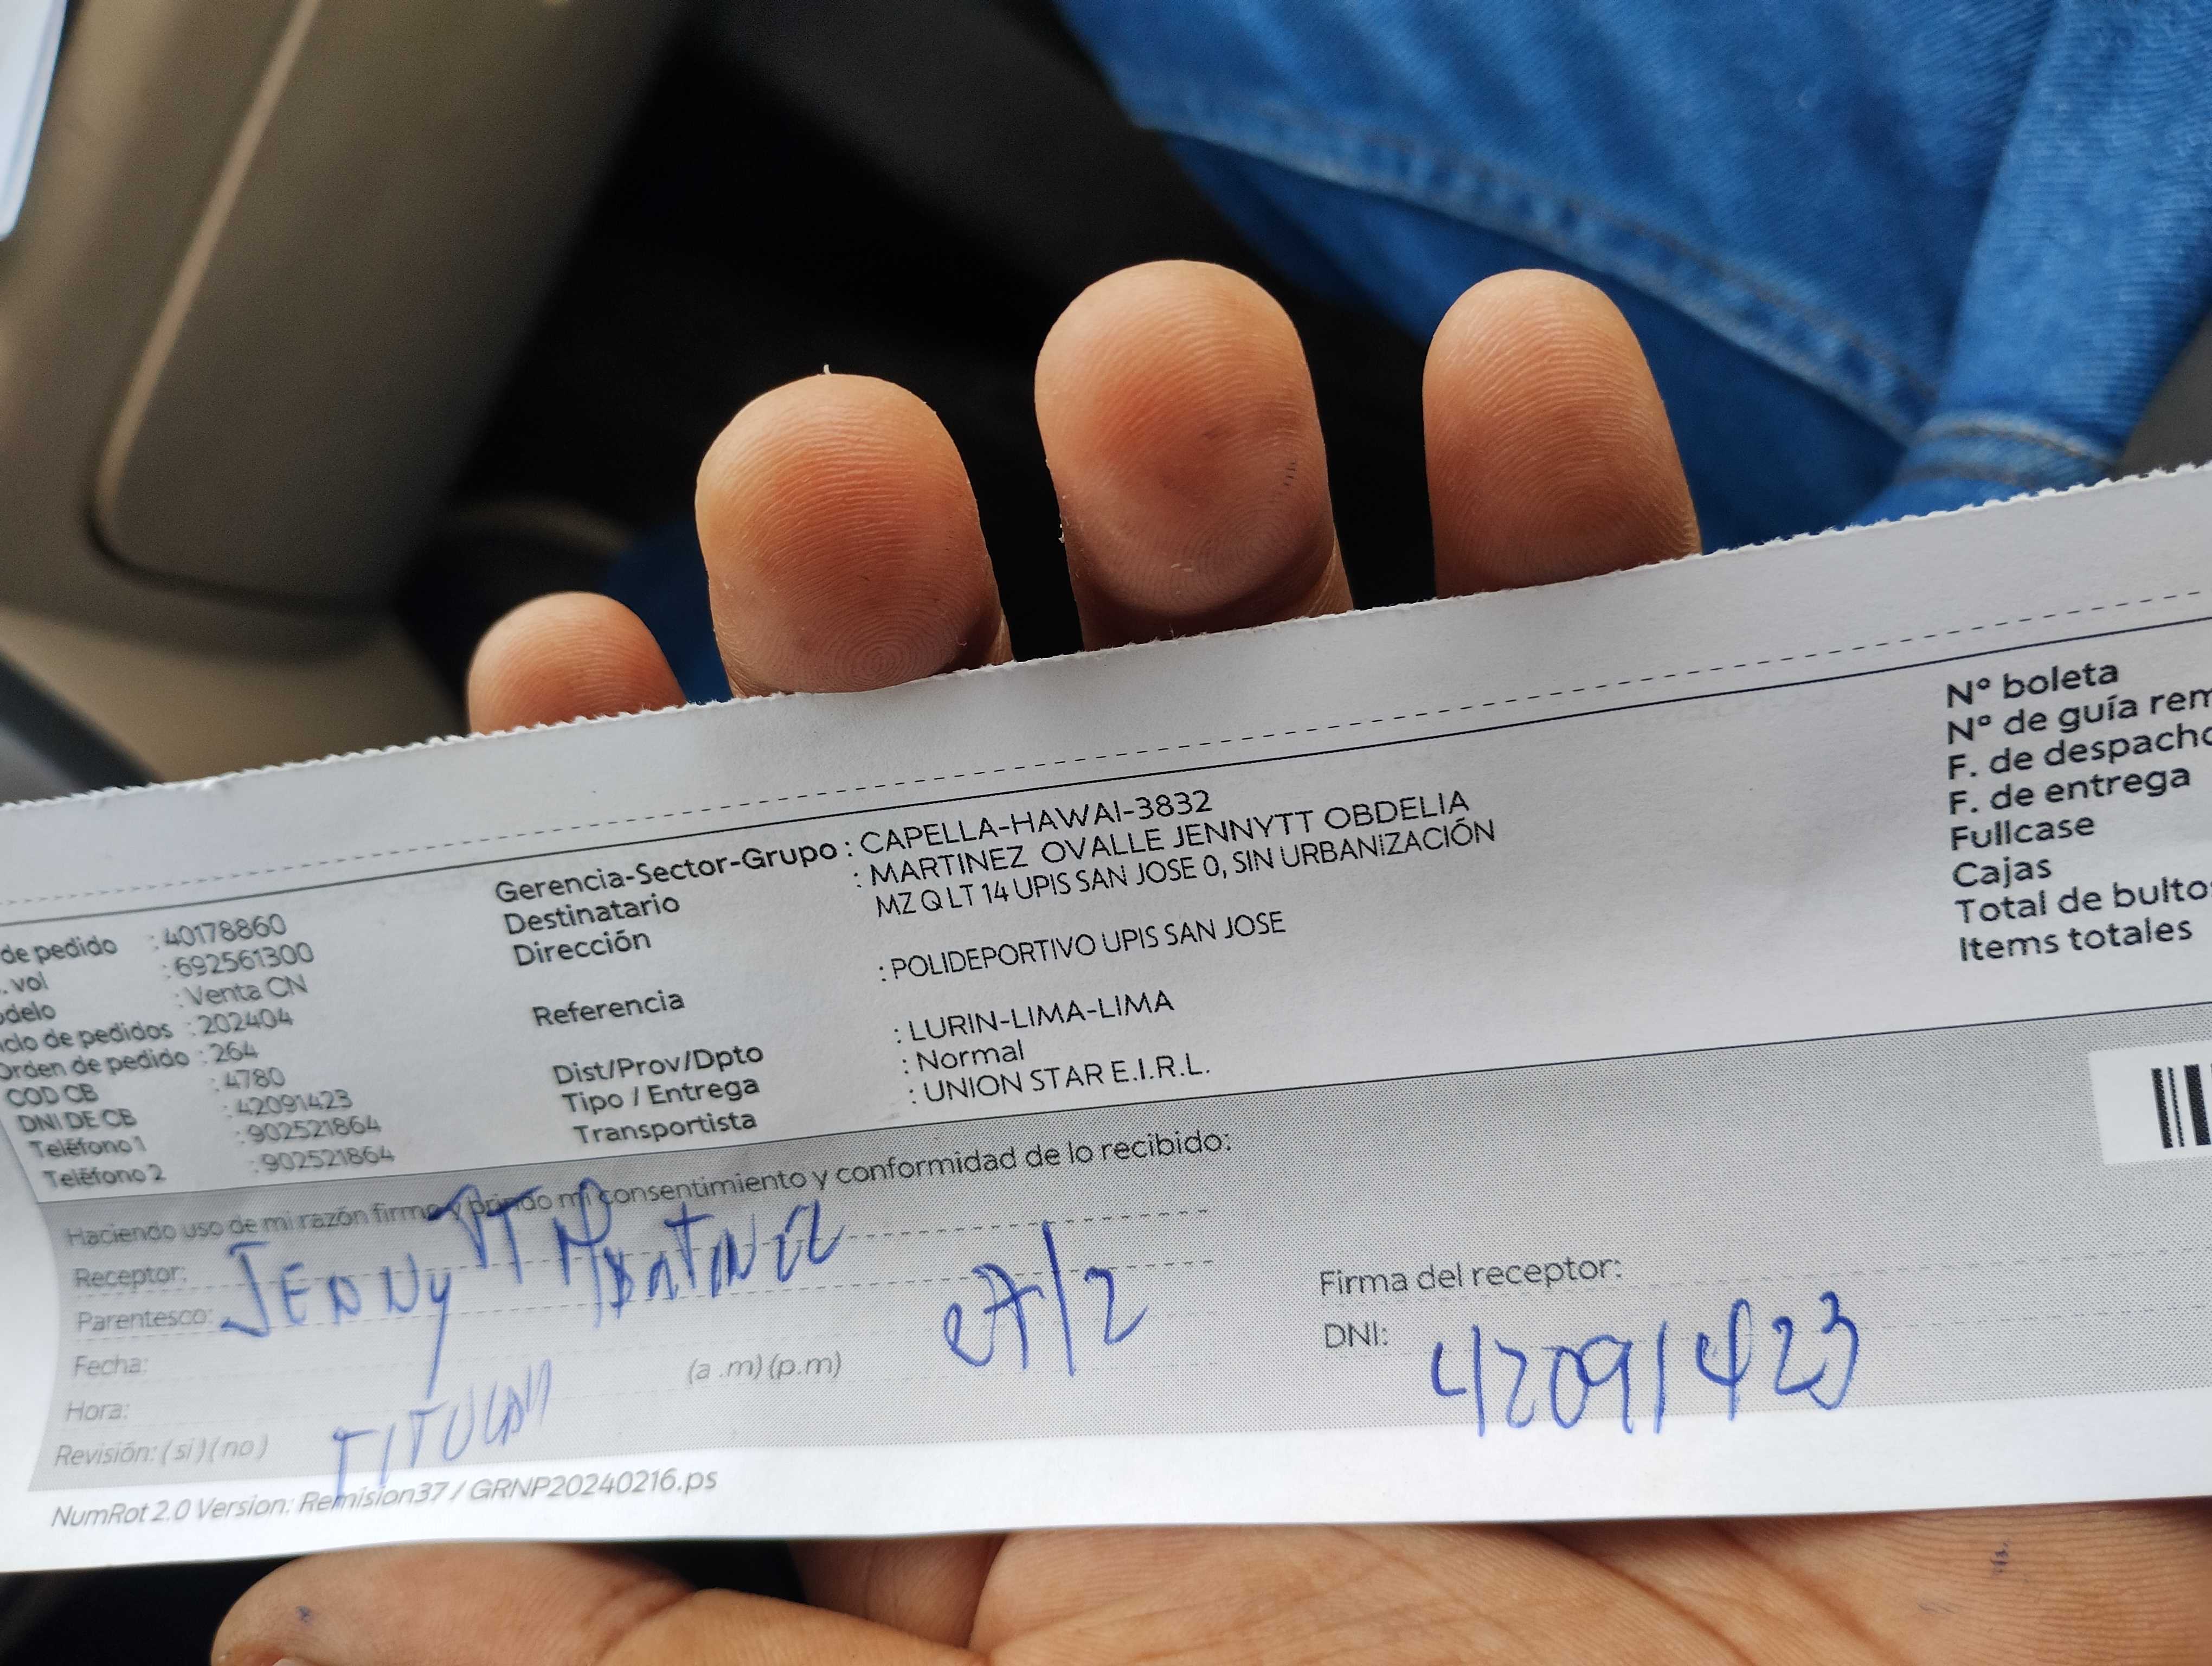 de pedido : 40178860
. vol : 692561300
odelo : Venta CN
iclo de pedidos : 202404
Orden de pedido : 264
COD CB : 4780
DNI DE CB : 42091423
Teléfono 1 : 902521864
Teléfono 2 : 902521864
Gerencia-Sector-Grupo : CAPELLA-HAWAI-3832
Destinatario : MARTINEZ OVALLE JENNYTT OBDELIA
Dirección MZ Q LT 14 UPIS SAN JOSE 0, SIN URBANIZACIÓN
Referencia : POLIDEPORTIVO UPIS SAN JOSE
Dist/Prov/Dpto : LURIN-LIMA-LIMA
Tipo / Entrega : Normal
Transportista : UNION STAR E.I.R.L.
N° boleta
N° de guía rem
F. de despacho
F. de entrega
Fullcase
Cajas
Total de bultos
Items totales
Haciendo uso de mi razón firmo y brindo mi consentimiento y conformidad de lo recibido:
Receptor: JENNYTT MARTINEZ
Parentesco:
Fecha:
Hora: (a .m) (p.m)
Revisión: ( si ) ( no ) TITULAR
Firma del receptor:
DNI: 42091423
NumRot 2.0 Version: Remision37 / GRNP20240216.ps